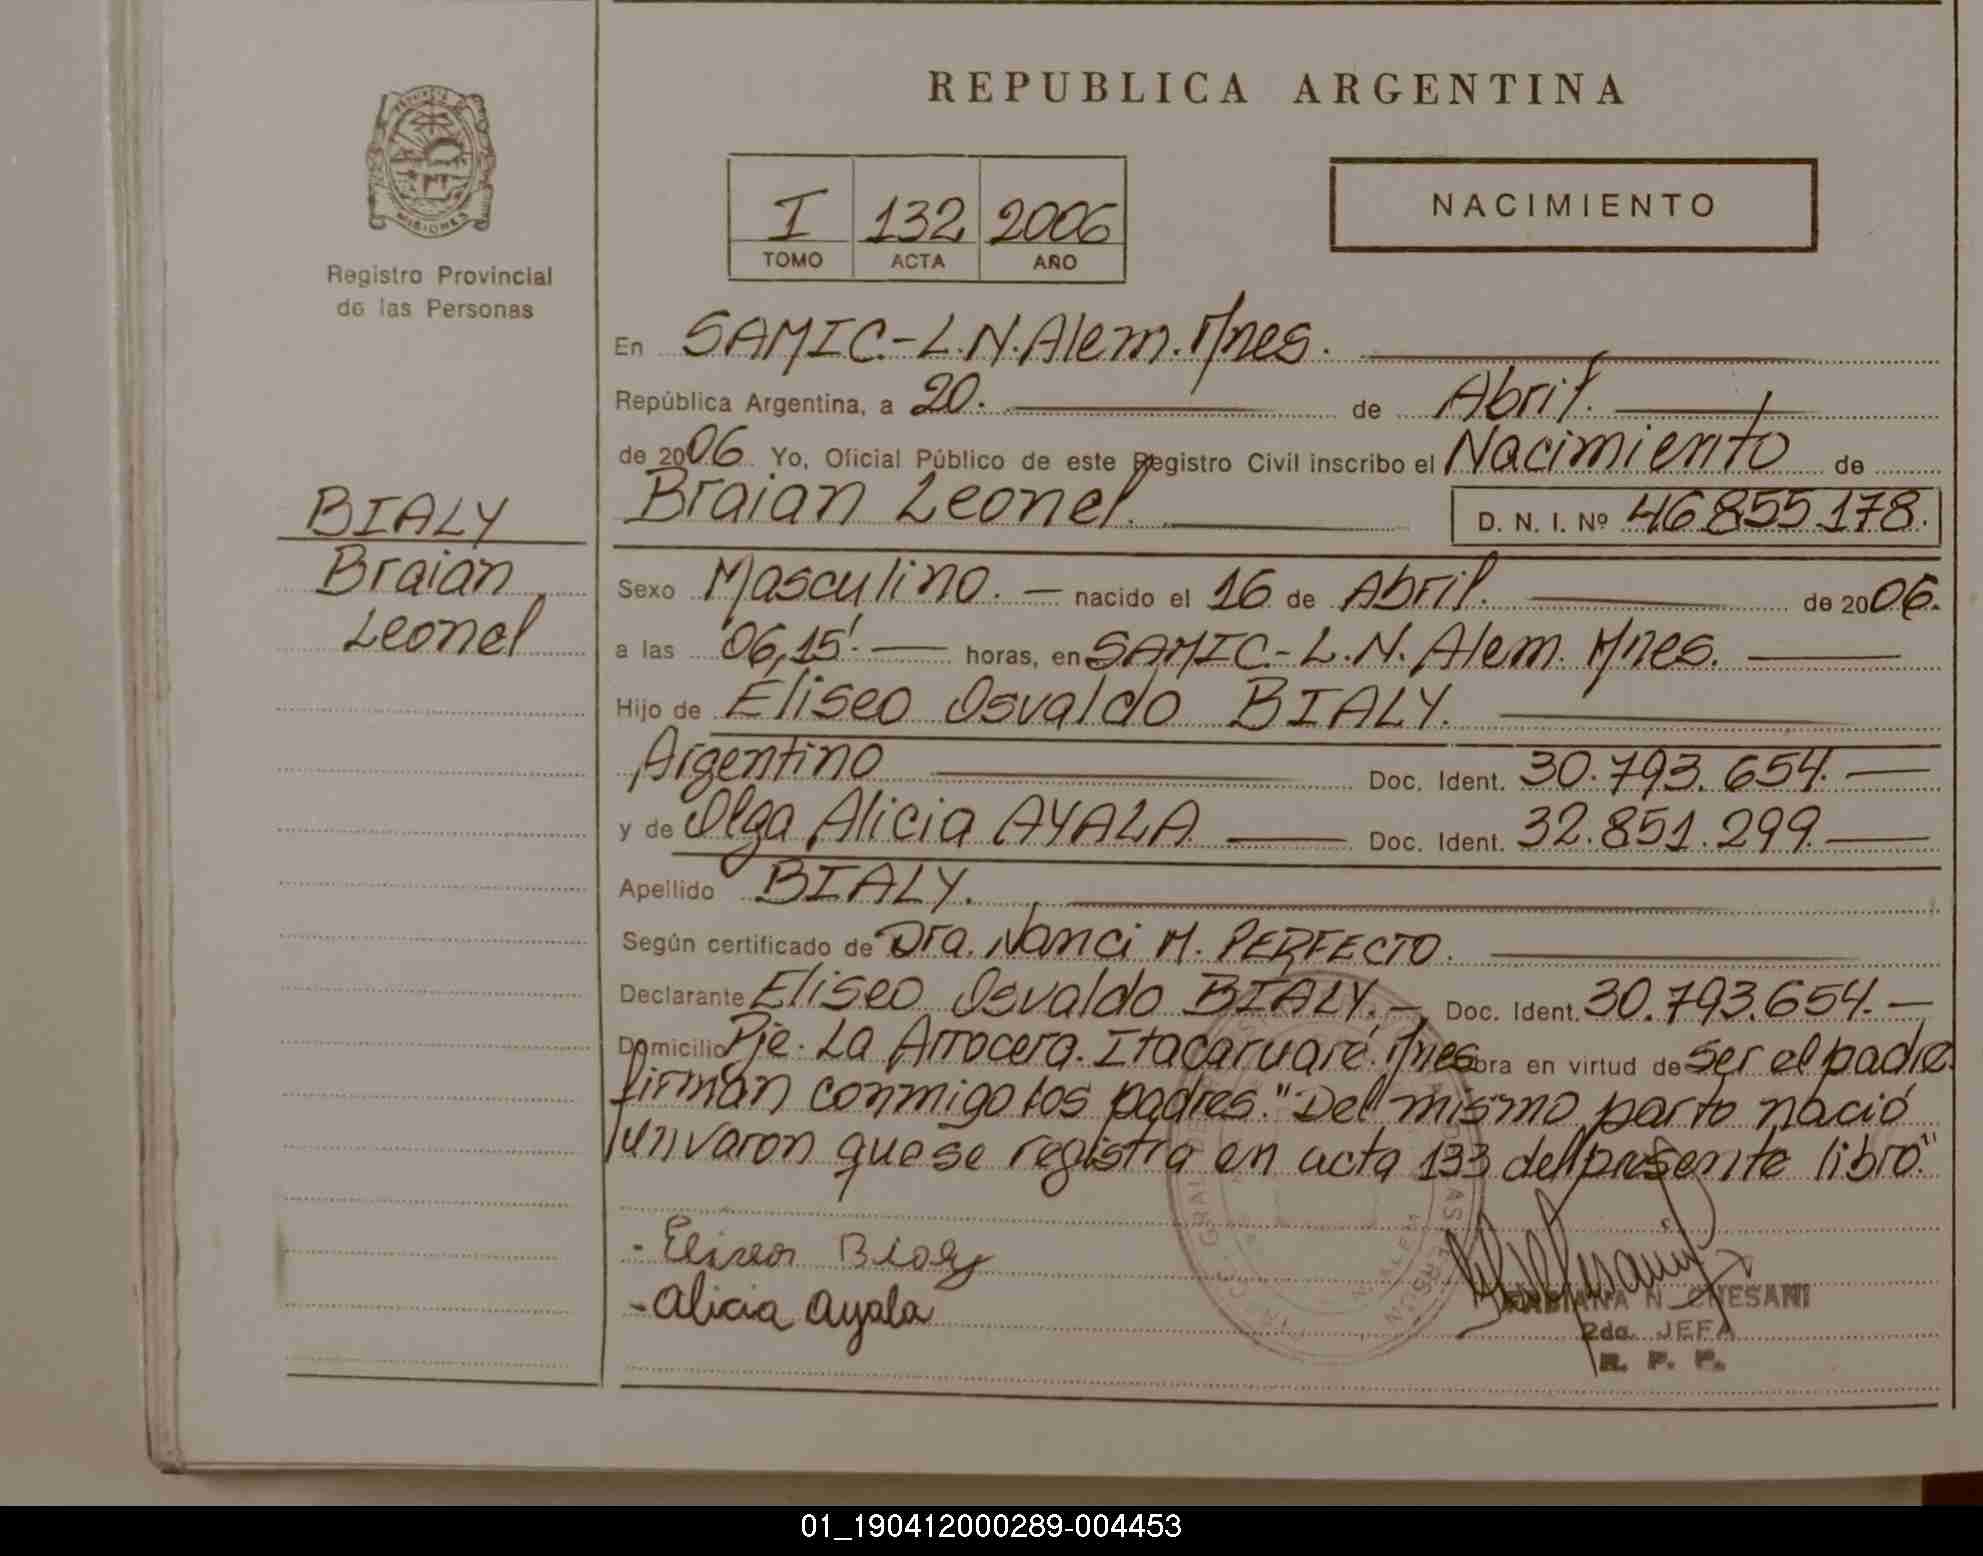 REPUBLICA ARGENTINA
MISIONES
Registro Provincial
de las Personas
I 132 2006
TOMO ACTA AÑO
NACIMIENTO
En SAMIC.-L.N.Alem.Mnes.
República Argentina, a 20. de Abril.
de 2006 Yo, Oficial Público de este Registro Civil inscribo el Nacimiento de
Braian Leonel. D. N. I. Nº 46 855 178.
BIALY
Braian
Leonel
Sexo Masculino. nacido el 16 de Abril. de 2006.
a las 06,15'. horas, en SAMIC.-L.N. Alem. Mnes.
Hijo de Eliseo Osvaldo BIALY.
Argentino Doc. Ident. 30.793.654.
y de Olga Alicia AYALA Doc. Ident. 32.851.299.
Apellido BIALY.
Según certificado de Dra. Nanci M. PERFECTO.
Declarante Eliseo Osvaldo BIALY. Doc. Ident. 30.793.654.
Domicilio Pje. La Arrocera. Itacaruaré. Mnes obra en virtud de ser el padre
firman conmigo los padres."Del mismo parto nació
un varon que se registra en acta 133 del presente libro."
- Eliseo Bialy
- Alicia Ayala
FABIANA N. CHESANI
2da. JEFA
R. P. P.
01_190412000289-004453